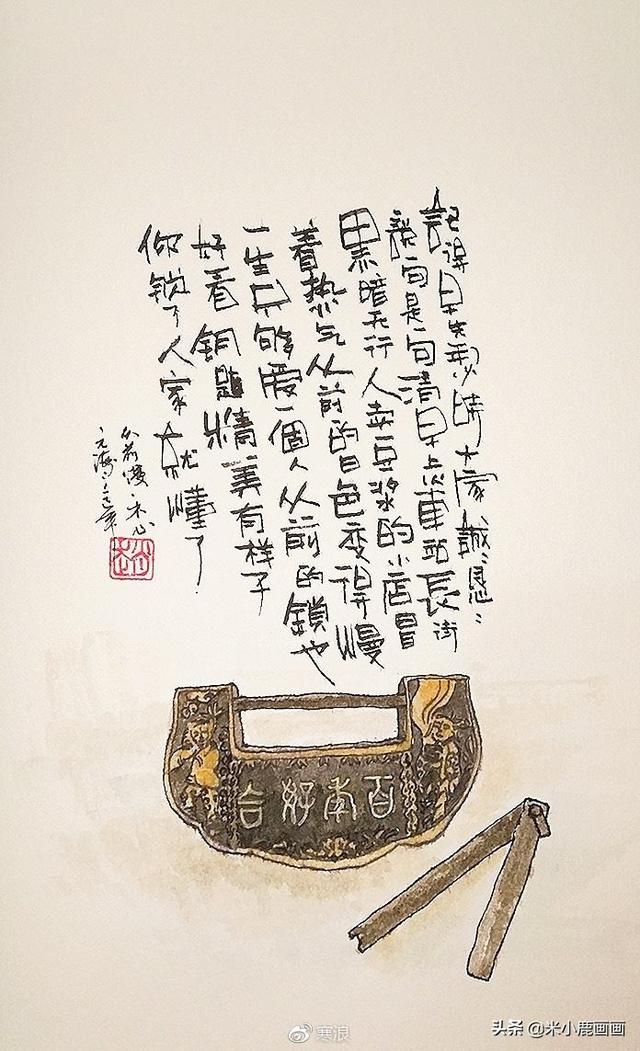 記得早先少時大家誠:懇:
説一句是一句清早上火車站長街
黑暗无行人卖豆浆的小店冒
着热气从前的日色变得慢
一生只够爱一個人从前的鎖也
好看钥匙精美有样子
你锁了人家就懂了
从前慢·木心
百年好合
寒浪
头条 @米小鹿画画